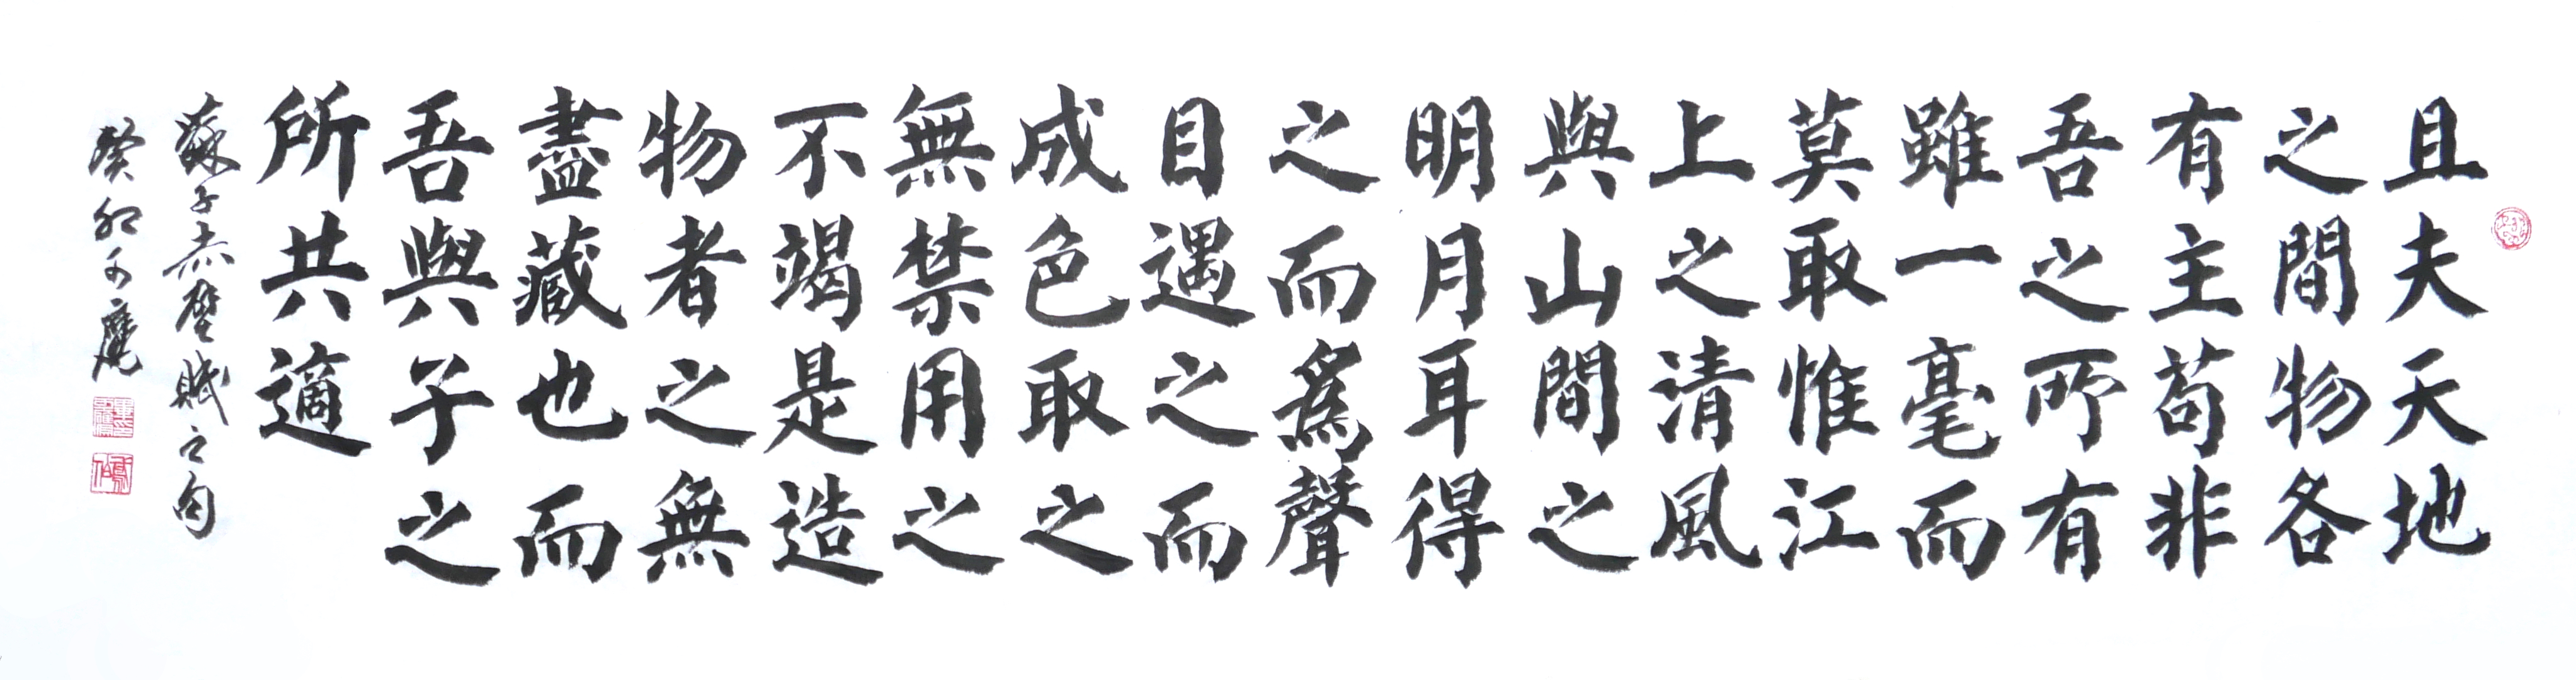 且夫天地
之間物各
有主苟非
吾之所有
雖一毫而
莫取惟江
上之清風
與山間之
明月耳得
之而爲聲
目遇之而
成色取之
無禁用之
不竭是造
物者之無
盡藏也而
吾與子之
所共適
蘇子赤壁賦之句
癸卯